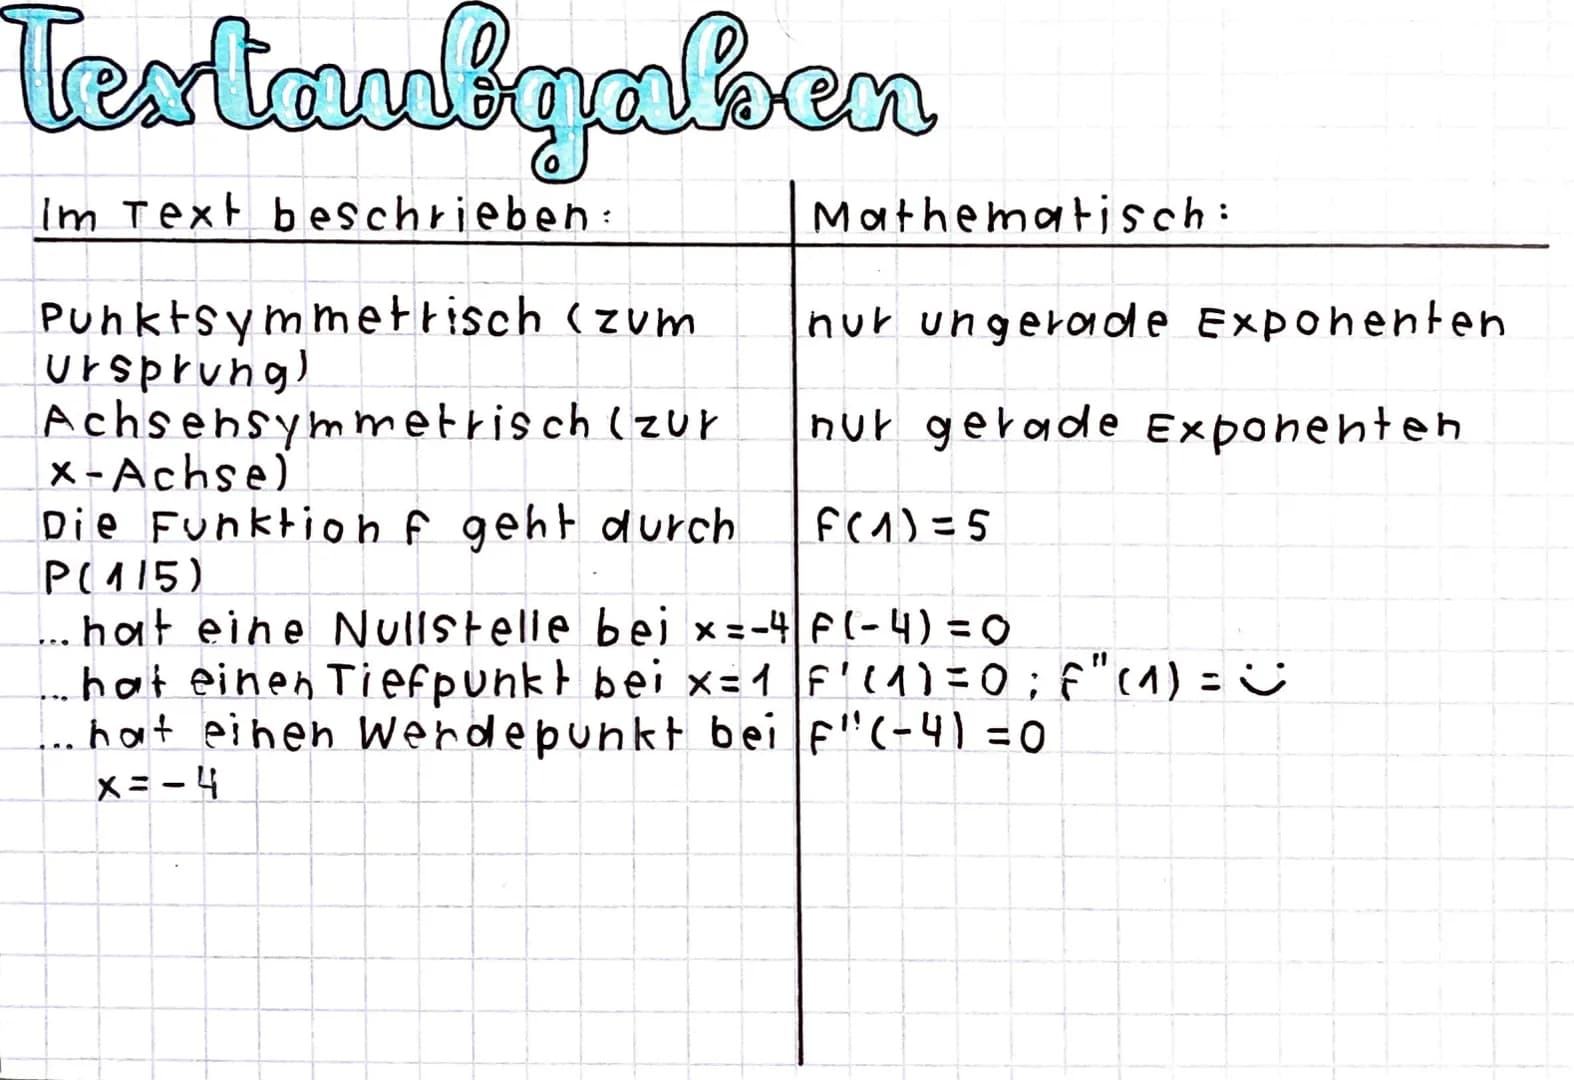 Textaufgaben
Im Text beschrieben:
Mathematisch:
Punktsymmetrisch (zum
Ursprung)
nur ungerade Exponenten
Achsensymmetrisch (zur
x-Achse)
nur gerade Exponenten
Die Funktion f geht durch
P(1/5)
f(1)=5
... hat eine Nullstelle bei x=-4
f(-4)=0
... hat einen Tiefpunkt bei x=1
f'(1)=0; f"(1) = ü
... hat einen Wendepunkt bei
x=-4
f"(-4)=0